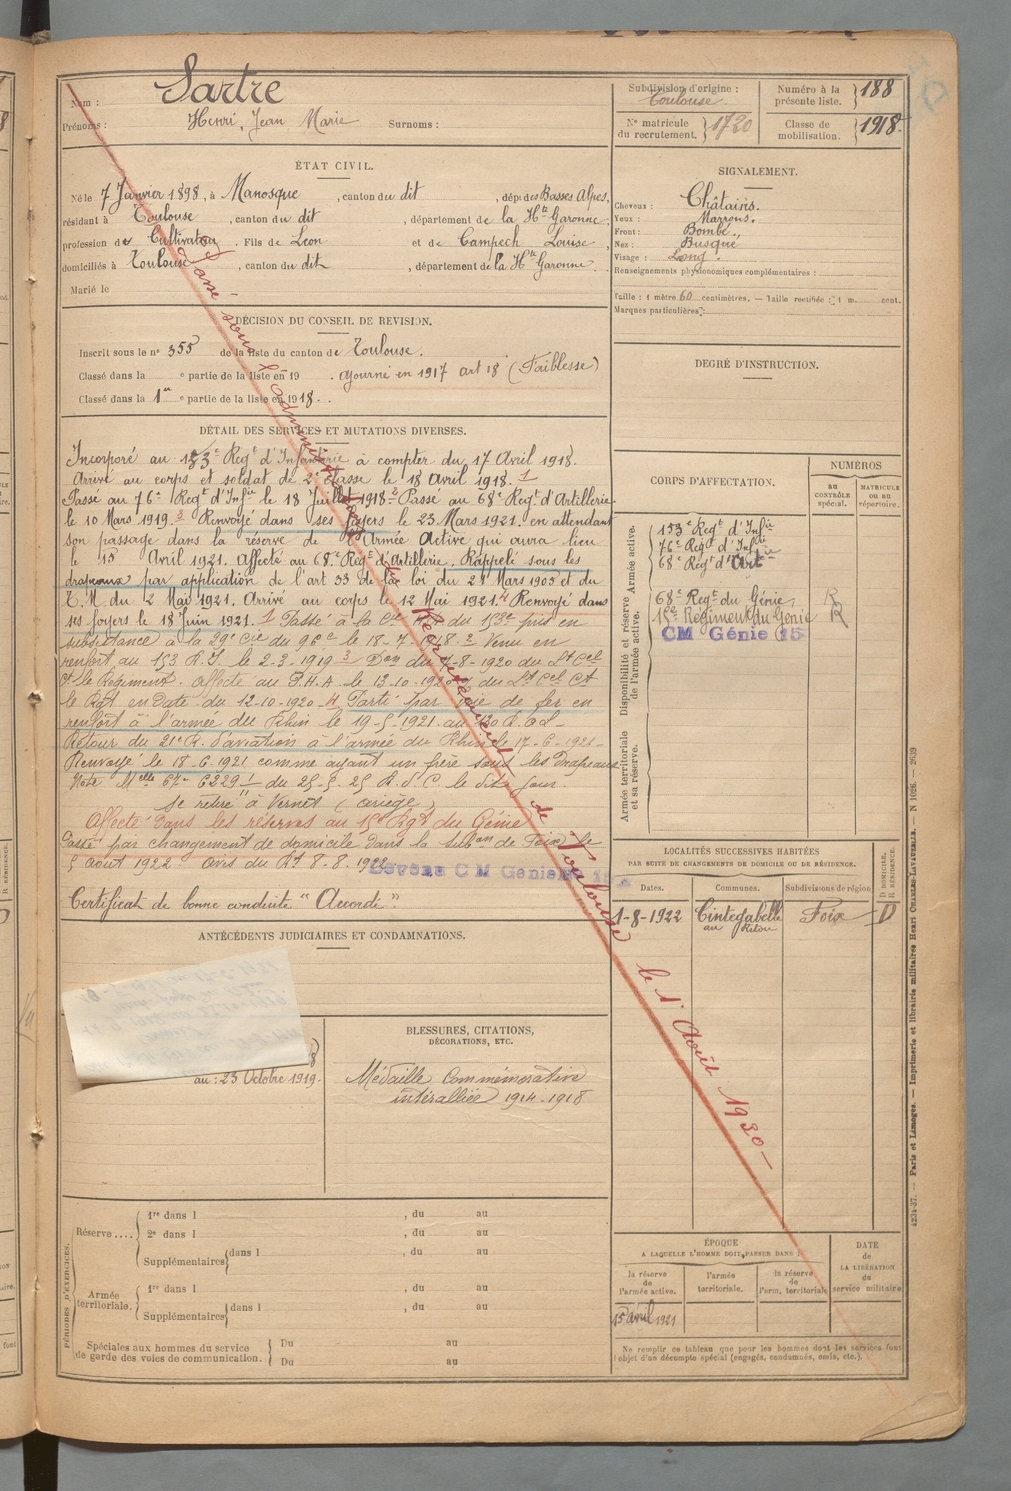 Nom : Sartre
Prénoms : Henri, Jean Marie Surnoms :
Subdivision d'origine :
Toulouse.
Numéro à la
présente liste. } 188
Nº matricule
du recrutement. } 1720
Classe de
mobilisation. } 1918.
ÉTAT CIVIL.
Né le 7 Janvier 1898, à Manosque, canton du dit, dép! des Basses Alpes,
résidant à Toulouse, canton du dit, département de la Hte Garonne,
profession de Cultivateur. Fils de Léon et de Campech Louise,
domiciliés à Toulouse, canton du dit, département de la Hte Garonne.
Marié le
SIGNALEMENT.
Cheveux : Châtains.
Yeux : Marrons.
Front : Bombé.
Nez : Busqué
Visage : Long.
Renseignements physionomiques complémentaires :
Taille : 1 mètre 60 centimètres. — Taille rectifiée : 1 m. cent.
Marques particulières :
DÉCISION DU CONSEIL DE REVISION.
Inscrit sous le nº 355 de la liste du canton de Toulouse.
Classé dans la e partie de la liste en 19 . ajourné en 1917 art 18 (Faiblesse)
Classé dans la 1re e partie de la liste en 1918.
DEGRÉ D'INSTRUCTION.
DÉTAIL DES SERVICES ET MUTATIONS DIVERSES.
Incorporé au 153e Regt d'Infanterie à compter du 17 Avril 1918.
Arrivé au corps et soldat de 2e classe le 18 Avril 1918. 1
Passé au 76e Regt d'Infie le 18 Juillet 1918. 2 Passé au 68e Regt d'Artillerie
le 10 Mars 1919. 3 Renvoyé dans ses foyers le 23 Mars 1921. en attendant
son passage dans la réserve de l'Armée Active qui aura lieu
le 15 Avril 1921. Affecté au 68e Regt d'Artillerie. Rappelé sous les
drapeaux par application de l'art 33 de la loi du 21 Mars 1905 et du
T.M. du 2 Mai 1921. Arrivé au corps le 12 Mai 1921. 4 Renvoyé dans
ses foyers le 18 Juin 1921. 1 Passé à la Cie du 153e puis en
subsistance à la 29e Cie du 96e le 18-7-1918. 2 Venu en
renfort au 153 R.I. le 2-3-1919 3 Don du -8-1920 du Lt Cel
Ct le Régiment. affecté au P.H.A le 12.10-1920 du Lt Cel Ct
le Rgt en date du 12-10-1920 4 Parti par voie de fer en
renfort à l'armée du Rhin le 19-5-1921. au
Retour du 21e R. d'aviation à l'armée du Rhin le 17-6-1921-
Renvoyé le 18-6-1921 comme ayant un frère sous les Drapeaux
Note Melle 67- 6229 du 25-5-25 le dit jour.
Se retire à Vernet (ariège)
Affecté dans les réserves au 15e Rgt du Génie
Passé par changement de domicile dans la subon de Foix le
5 Aout 1922 avis du Rt 8-8-1922
Devenu CM Génie 15
Certificat de bonne conduite "Accordé".
Passé sous l'administration du Recrutement de Toulouse le 1er Août 1930 —
CORPS D'AFFECTATION.
NUMÉROS
AU
CONTRÔLE
spécial.
MATRICULE
OU AU
répertoire.
Armée active.
153e Regt d'Infie
76e Regt d'Infie
68e Regt d'Artie
Disponibilité et réserve
de l'armée active.
68e Regt du Génie, R
15e Régiment du Génie R
CM Génie 15
Armée territoriale
et sa réserve.
LOCALITÉS SUCCESSIVES HABITÉES
PAR SUITE DE CHANGEMENTS DE DOMICILE OU DE RÉSIDENCE.
Dates. Communes. Subdivisions de région.
D DOMICILE.
R RÉSIDENCE.
1-8-1922 Cintegabelle Foix D
au
ANTÉCÉDENTS JUDICIAIRES ET CONDAMNATIONS.
au : 23 Octobre 1919.
BLESSURES, CITATIONS,
DÉCORATIONS, ETC.
Médaille Commémorative
interalliée 1914-1918
PÉRIODES D'EXERCICES.
Réserve....
1re dans l , du au
2e dans l , du au
Supplémentaires { dans l , du au
Armée
territoriale.
1re dans l , du au
Supplémentaires { dans l , du au
Spéciales aux hommes du service
de garde des voies de communication.
Du au
Du au
ÉPOQUE
A LAQUELLE L'HOMME DOIT PASSER DANS :
la réserve
de
l'armée active.
l'armée
territoriale.
la réserve
de
l'arm. territoriale
DATE
de
LA LIBÉRATION
du
service militaire
15 avril 1921
Ne remplir ce tableau que pour les hommes dont les services font
l'objet d'un décompte spécial (engagés, condamnés, omis, etc.).
4234-37. — Paris et Limoges. — Imprimerie et librairie militaires Henri CHARLES-LAVAUZELLE. — N 1026. — 2639